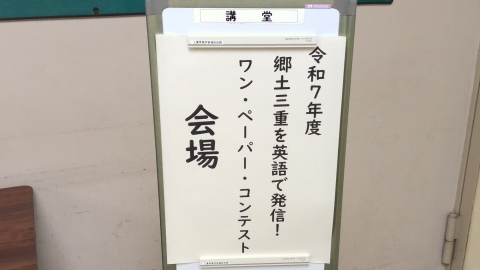 講堂
令和7年度
郷土三重を英語で発信！
ワン・ペーパー・コンテスト
会場